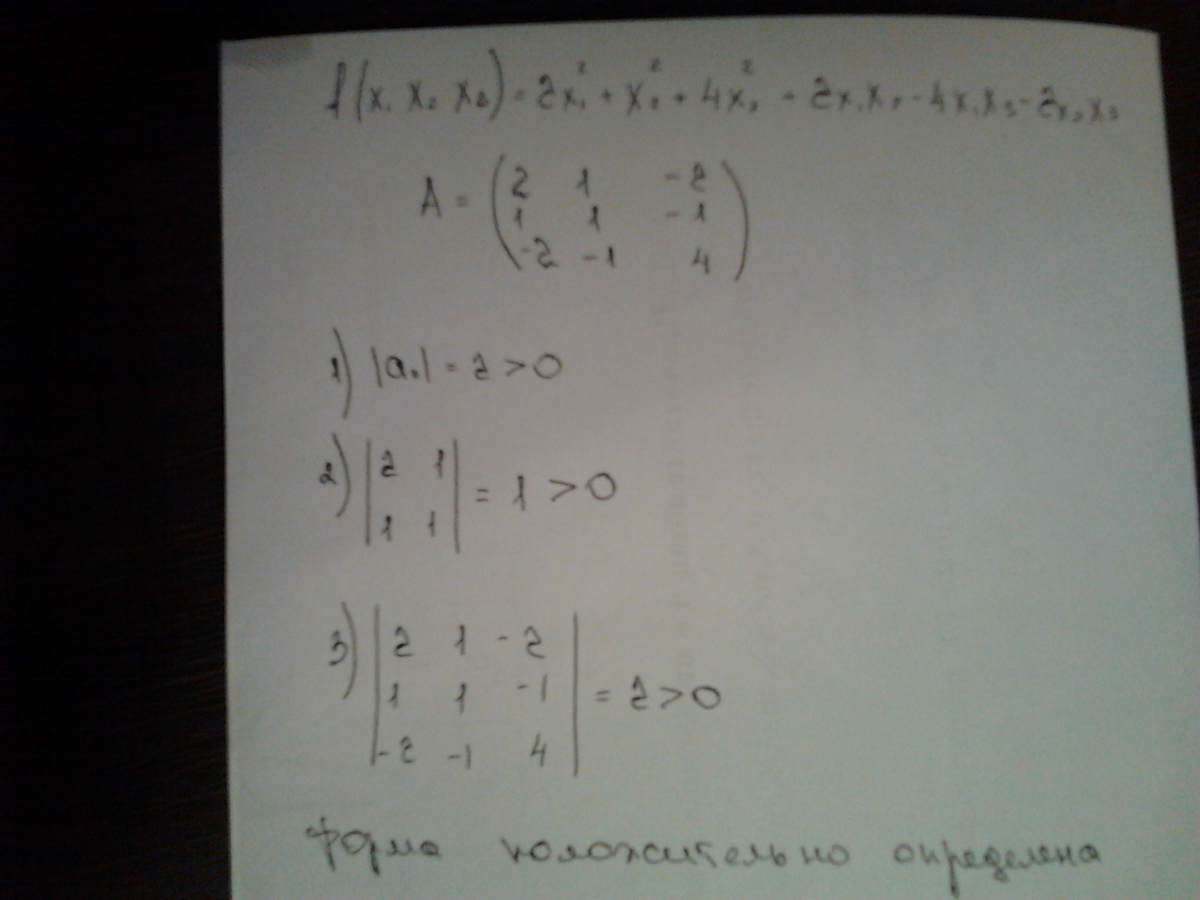 f(x₁ x₂ x₃) = 2x₁² + x₂² + 4x₃² + 2x₁x₂ - 4x₁x₃ - 2x₂x₃
A = ( 2 1 -2
1 1 -1
-2 -1 4 )
1) |a₁| = 2 > 0
2) | 2 1
1 1 | = 1 > 0
3) | 2 1 -2
1 1 -1
-2 -1 4 | = 2 > 0
Форма положительно определена